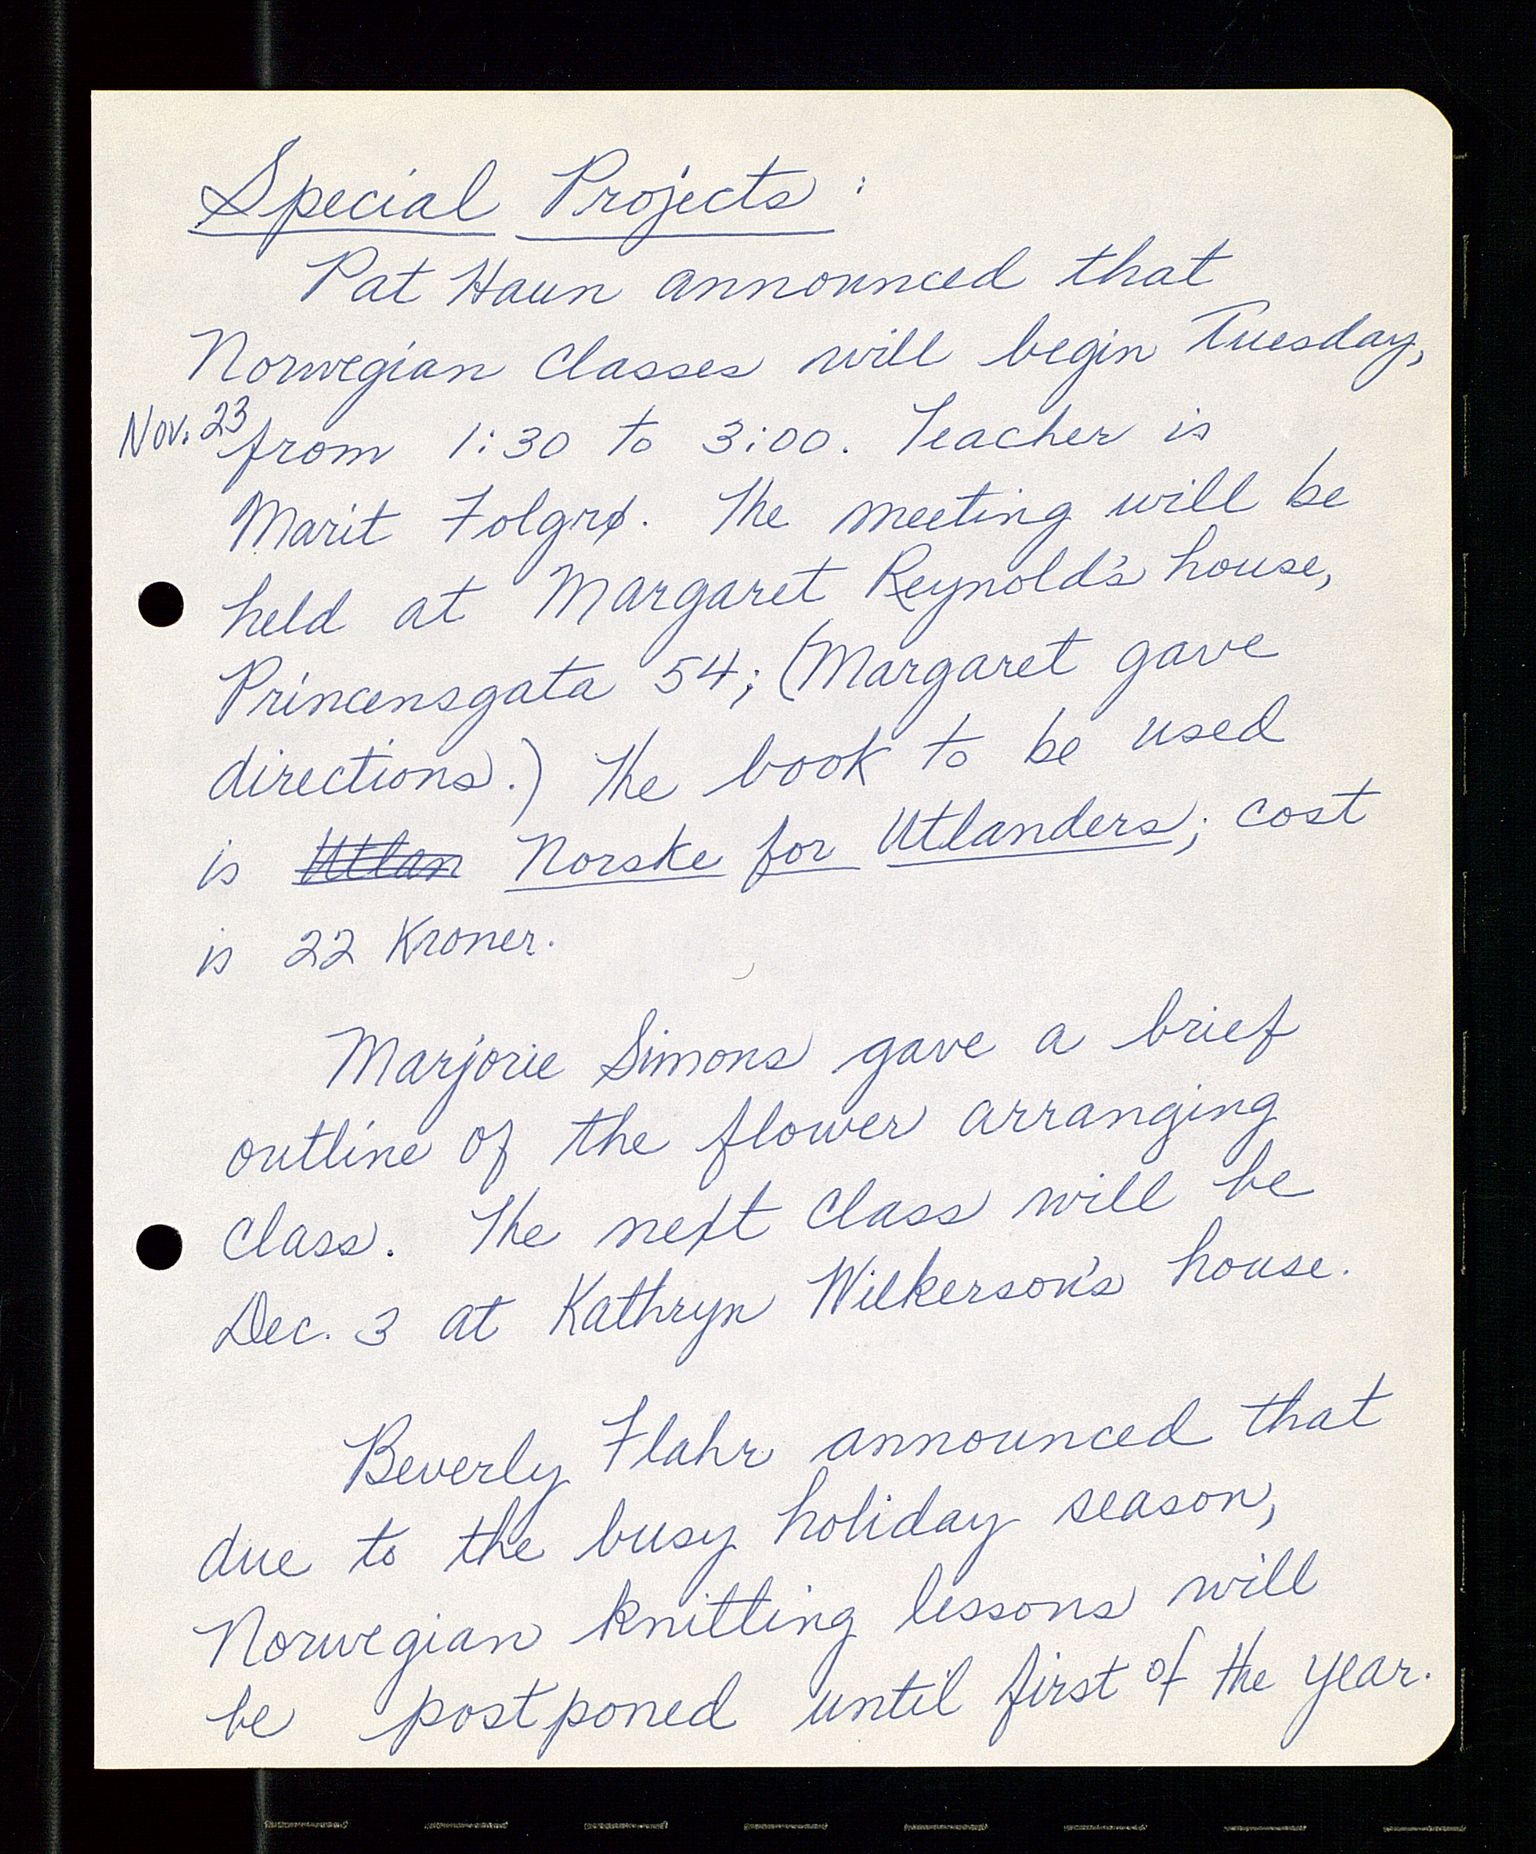 Special Projects:
Pat Haun announced that
Norwegian classes will begin Tuesday,
Nov. 23 from 1:30 to 3:00. Teacher is
Marit Folgrø. The meeting will be
held at Margaret Reynold's house,
Princensgata 54; (Margaret gave
directions.) The book to be used
is Utlan Norske for Utlanders; cost
is 22 Kroner.
Marjorie Simons gave a brief
outline of the flower arranging
class. The next class will be
Dec. 3 at Kathryn Wilkerson's house.
Beverly Flahr announced that
due to the busy holiday season,
Norwegian knitting lessons will
be postponed until first of the year.